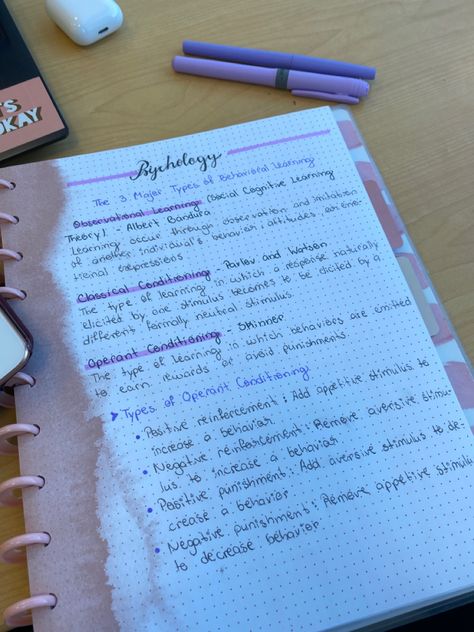 IT'S
OKAY
Psychology
The 3 Major Types of Behavioral Learning
Observational Learning: (Social Cognitive Learning
Theory) - Albert Bandura
Learning occure through observation and imitation
of another individual's behavior, attitudes, or emo-
tional expressions
Classical Conditioning - Pavlov and Watson
The type of learning in which a response naturally
elicited by one stimulus becomes to be elicited by a
different, formally neutral stimulus.
Operant Conditioning - Skinner
The type of learning in which behaviors are emitted
to earn rewards or avoid punishments.
➤ Types of Operant Conditioning
• Positive reinforcement: Add appetitive stimulus to
increase a behavior
• Negative reinforcement: Remove aversive stimu-
lus to increase a behavior
• Positive punishment: Add aversive stimulus to de-
crease a behavior
• Negative punishment: Remove appetitive stimulu
to decrease behavior